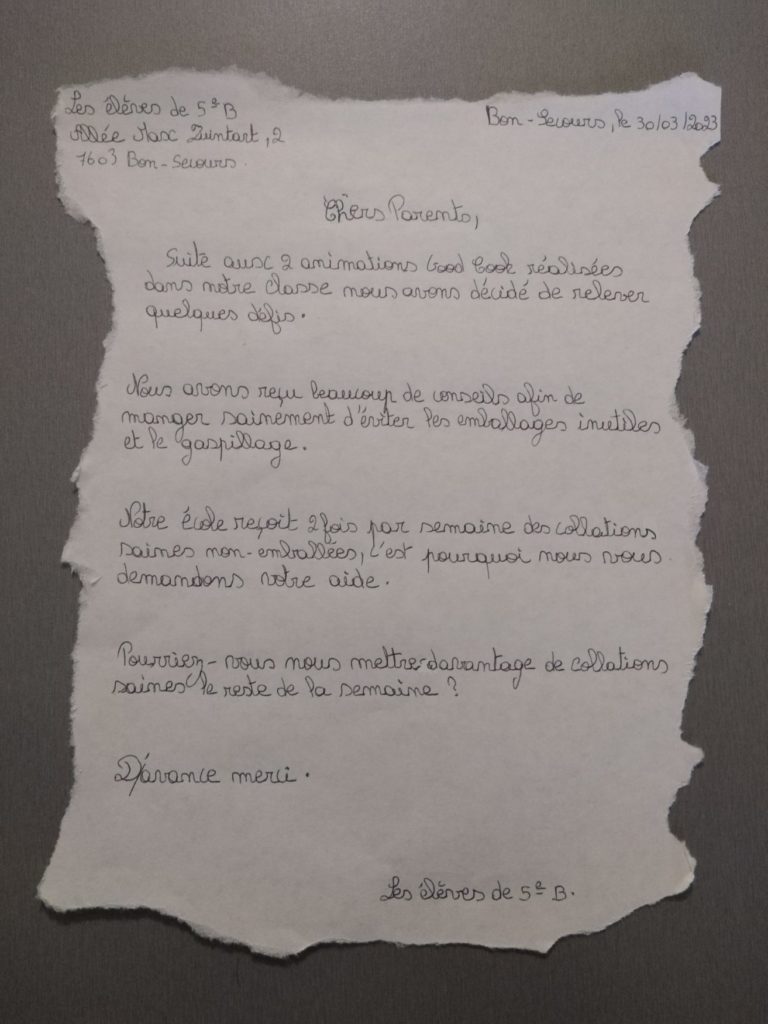 Les élèves de 5e B
Bon-Secours, le 30/03/2023
Allée Max Quintart, 2
7603 Bon-Secours.
Chers Parents,
Suite aux 2 animations Good Cook réalisées
dans notre classe nous avons décidé de relever
quelques défis.
Nous avons reçu beaucoup de conseils afin de
manger sainement d'éviter les emballages inutiles
et le gaspillage.
Notre école reçoit 2 fois par semaine des collations
saines non-emballées, c'est pourquoi nous vous
demandons votre aide.
Pourriez-vous nous mettre davantage de collations
saines le reste de la semaine ?
D'avance merci.
Les élèves de 5e B.